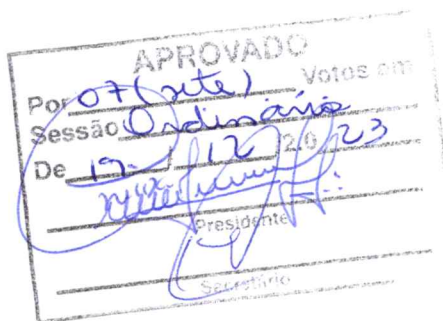 APROVADO
Por 07 (sete) Votos em
Sessão Ordinária
De 19 / 12 / 20 23
Presidente
Secretário